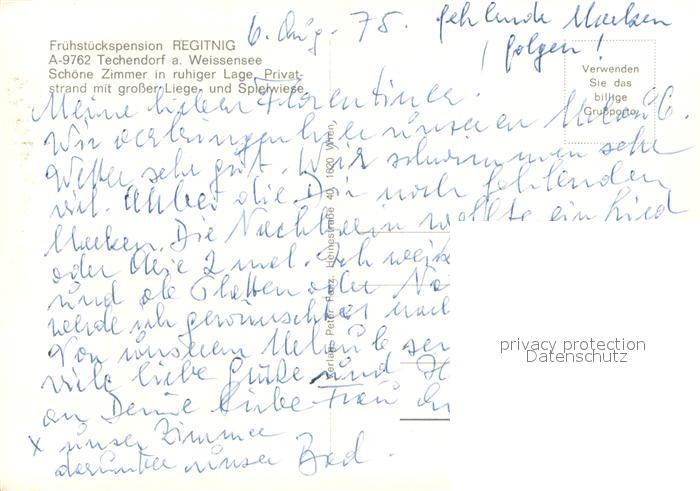 6. Aug. 75. fehlende Marken
folgen!
Frühstückspension REGITNIG
A-9762 Techendorf a. Weissensee
Schöne Zimmer in ruhiger Lage, Privat-
strand mit großer Liege- und Spielwiese
Verwenden
Sie das
billige
Grußporto
Meine lieben Florentiner.
Wir verbringen hier unseren Urlaub.
Wetter sehr gut. Wir schwimmen sehr
viel. Anbei die Dir noch fehlenden
Marken. Die Nachbarin wollte ein Lied
oder 2 mal. Ich
und ob Platten oder
werde ich gewünschtes
Von unserem Urlaub
viele liebe Grüße und
an Deine liebe Frau
x unser Zimmer
darunter unser Bad.
Verlag: Peter Heinestraße 40, 1020 Wien
privacy protection
Datenschutz